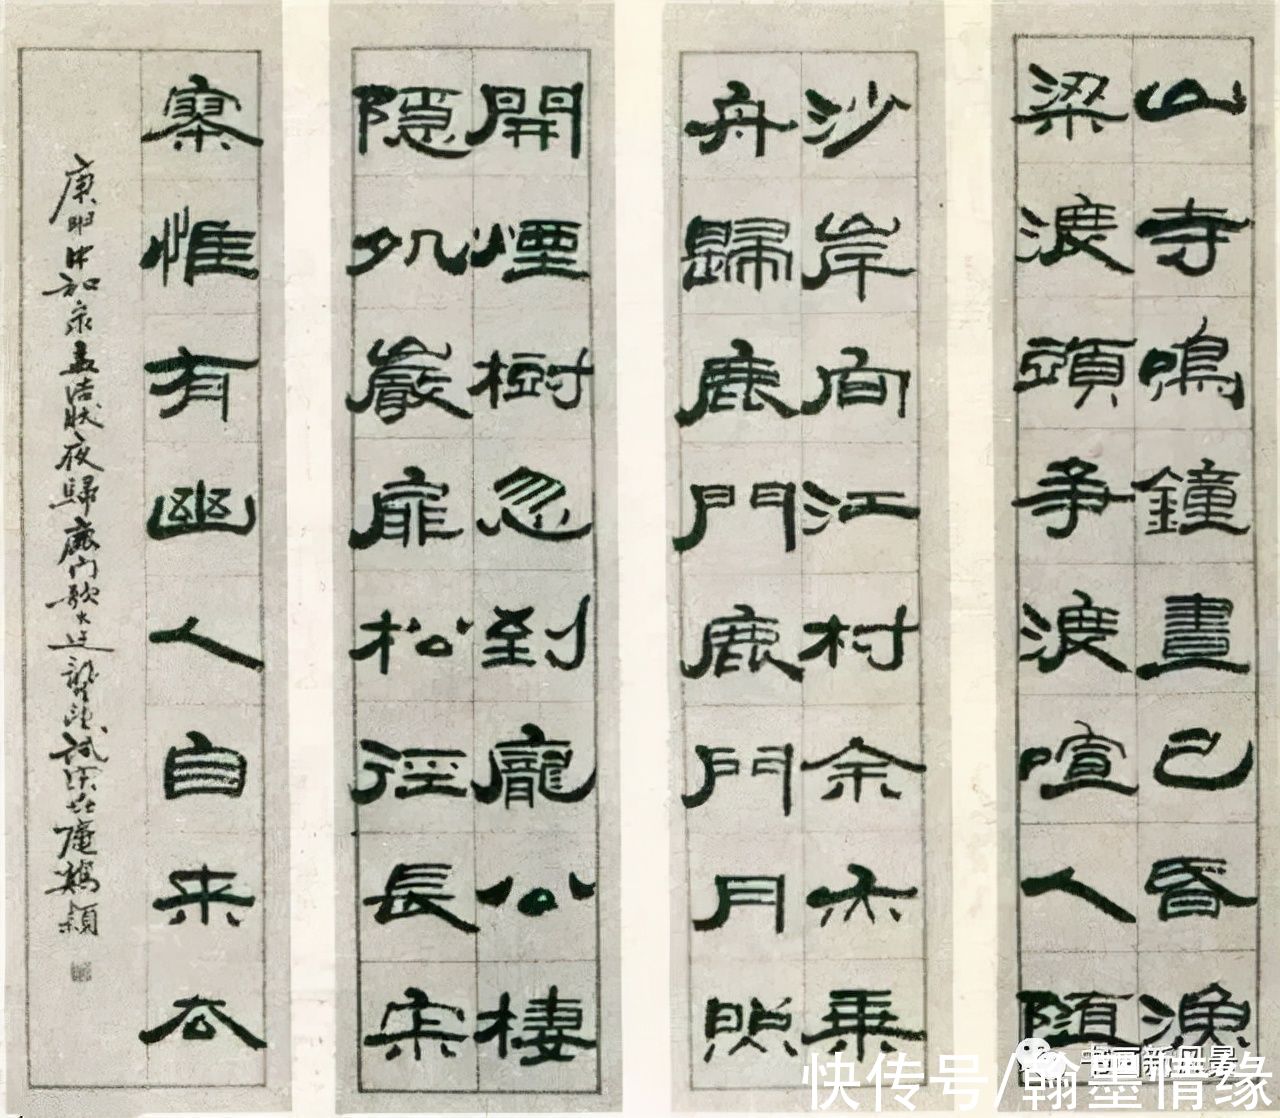 山寺鳴鐘晝已昏漁
梁渡頭争渡喧人隨
沙岸向江村余亦乗
舟歸鹿門鹿門月照
開煙樹忽到龐公棲
隱処巖扉松徑長寂
寥惟有幽人自来去
庚申中和录孟浩然夜歸鹿門歌大迂龔望試庵穎
书画新风景
快传号/翰墨情缘